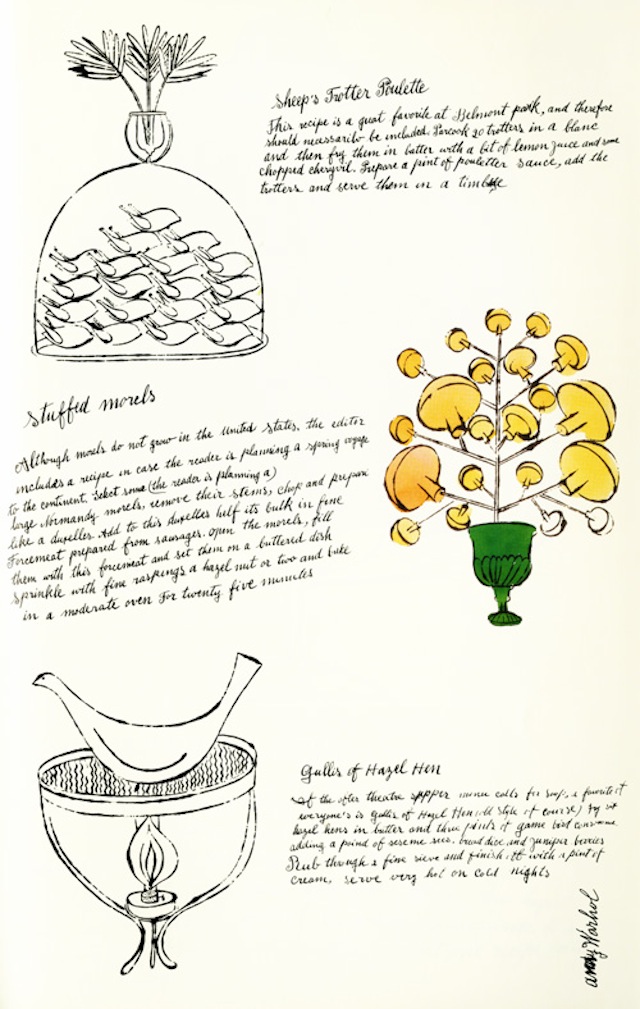 Sheep's Trotter Poulette
This recipe is a great favorite at Belmont park, and therefore
should necessarilo be included. Parcook 20 trotters in a blanc
and then fry them in batter with a bit of lemon juice and some
chopped chervil. Prepare a pint of pouletter sauce, add the
trotters and serve them in a timble
Stuffed morels
Although morels do not grow in the United States. the editor
includes a recipe in case the reader is planning a spring voyage
to the continent. Select some (the reader is planning a)
large Normandy morels, remove their stems, chop and prepare
like a duxeller. Add to this duxelles half its bulk in fine
Forcemeat prepared from sausages. Open the morels, fill
them with this forcemeat and set them on a buttered dish
sprinkle with fine raspings a hazel nut or two and bake
in a moderate oven for twenty five minutes
Gullis of Hazel Hen
If the after theatre supper menu calls for soup, a favorite of
everyone's is Gullis of Hazel Hen (old style of course) fry
hazel hens in butter and three pints of game bird consomme
adding a pound of sesame bread dice, and juniper berries
Rub through a fine sieve and finish it with a pint of
cream, serve very hot on cold nights
andy Warhol